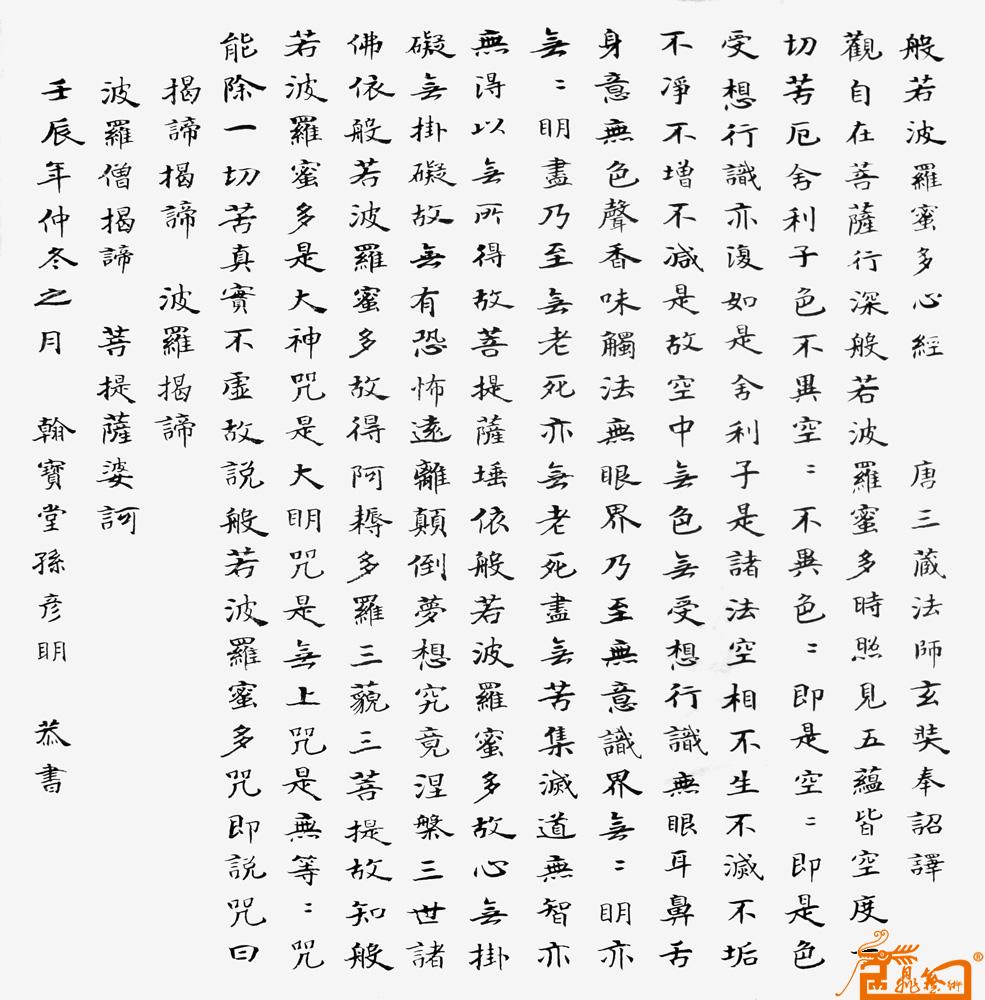 般若波羅蜜多心經 唐三藏法師玄奘奉詔譯
觀自在菩薩行深般若波羅蜜多時照見五蘊皆空度一
切苦厄舍利子色不異空〻不異色〻即是空〻即是色
受想行識亦復如是舍利子是諸法空相不生不滅不垢
不淨不增不減是故空中無色無受想行識無眼耳鼻舌
身意無色聲香味觸法無眼界乃至無意識界無〻明亦
無〻明盡乃至無老死亦無老死盡無苦集滅道無智亦
無得以無所得故菩提薩埵依般若波羅蜜多故心無掛
礙無掛礙故無有恐怖遠離顛倒夢想究竟涅槃三世諸
佛依般若波羅蜜多故得阿耨多羅三藐三菩提故知般
若波羅蜜多是大神咒是大明咒是無上咒是無等〻咒
能除一切苦真實不虛故說般若波羅蜜多咒即說咒曰
揭諦揭諦 波羅揭諦
波羅僧揭諦 菩提薩婆訶
壬辰年仲冬之月 翰寶堂孫彥明 恭書